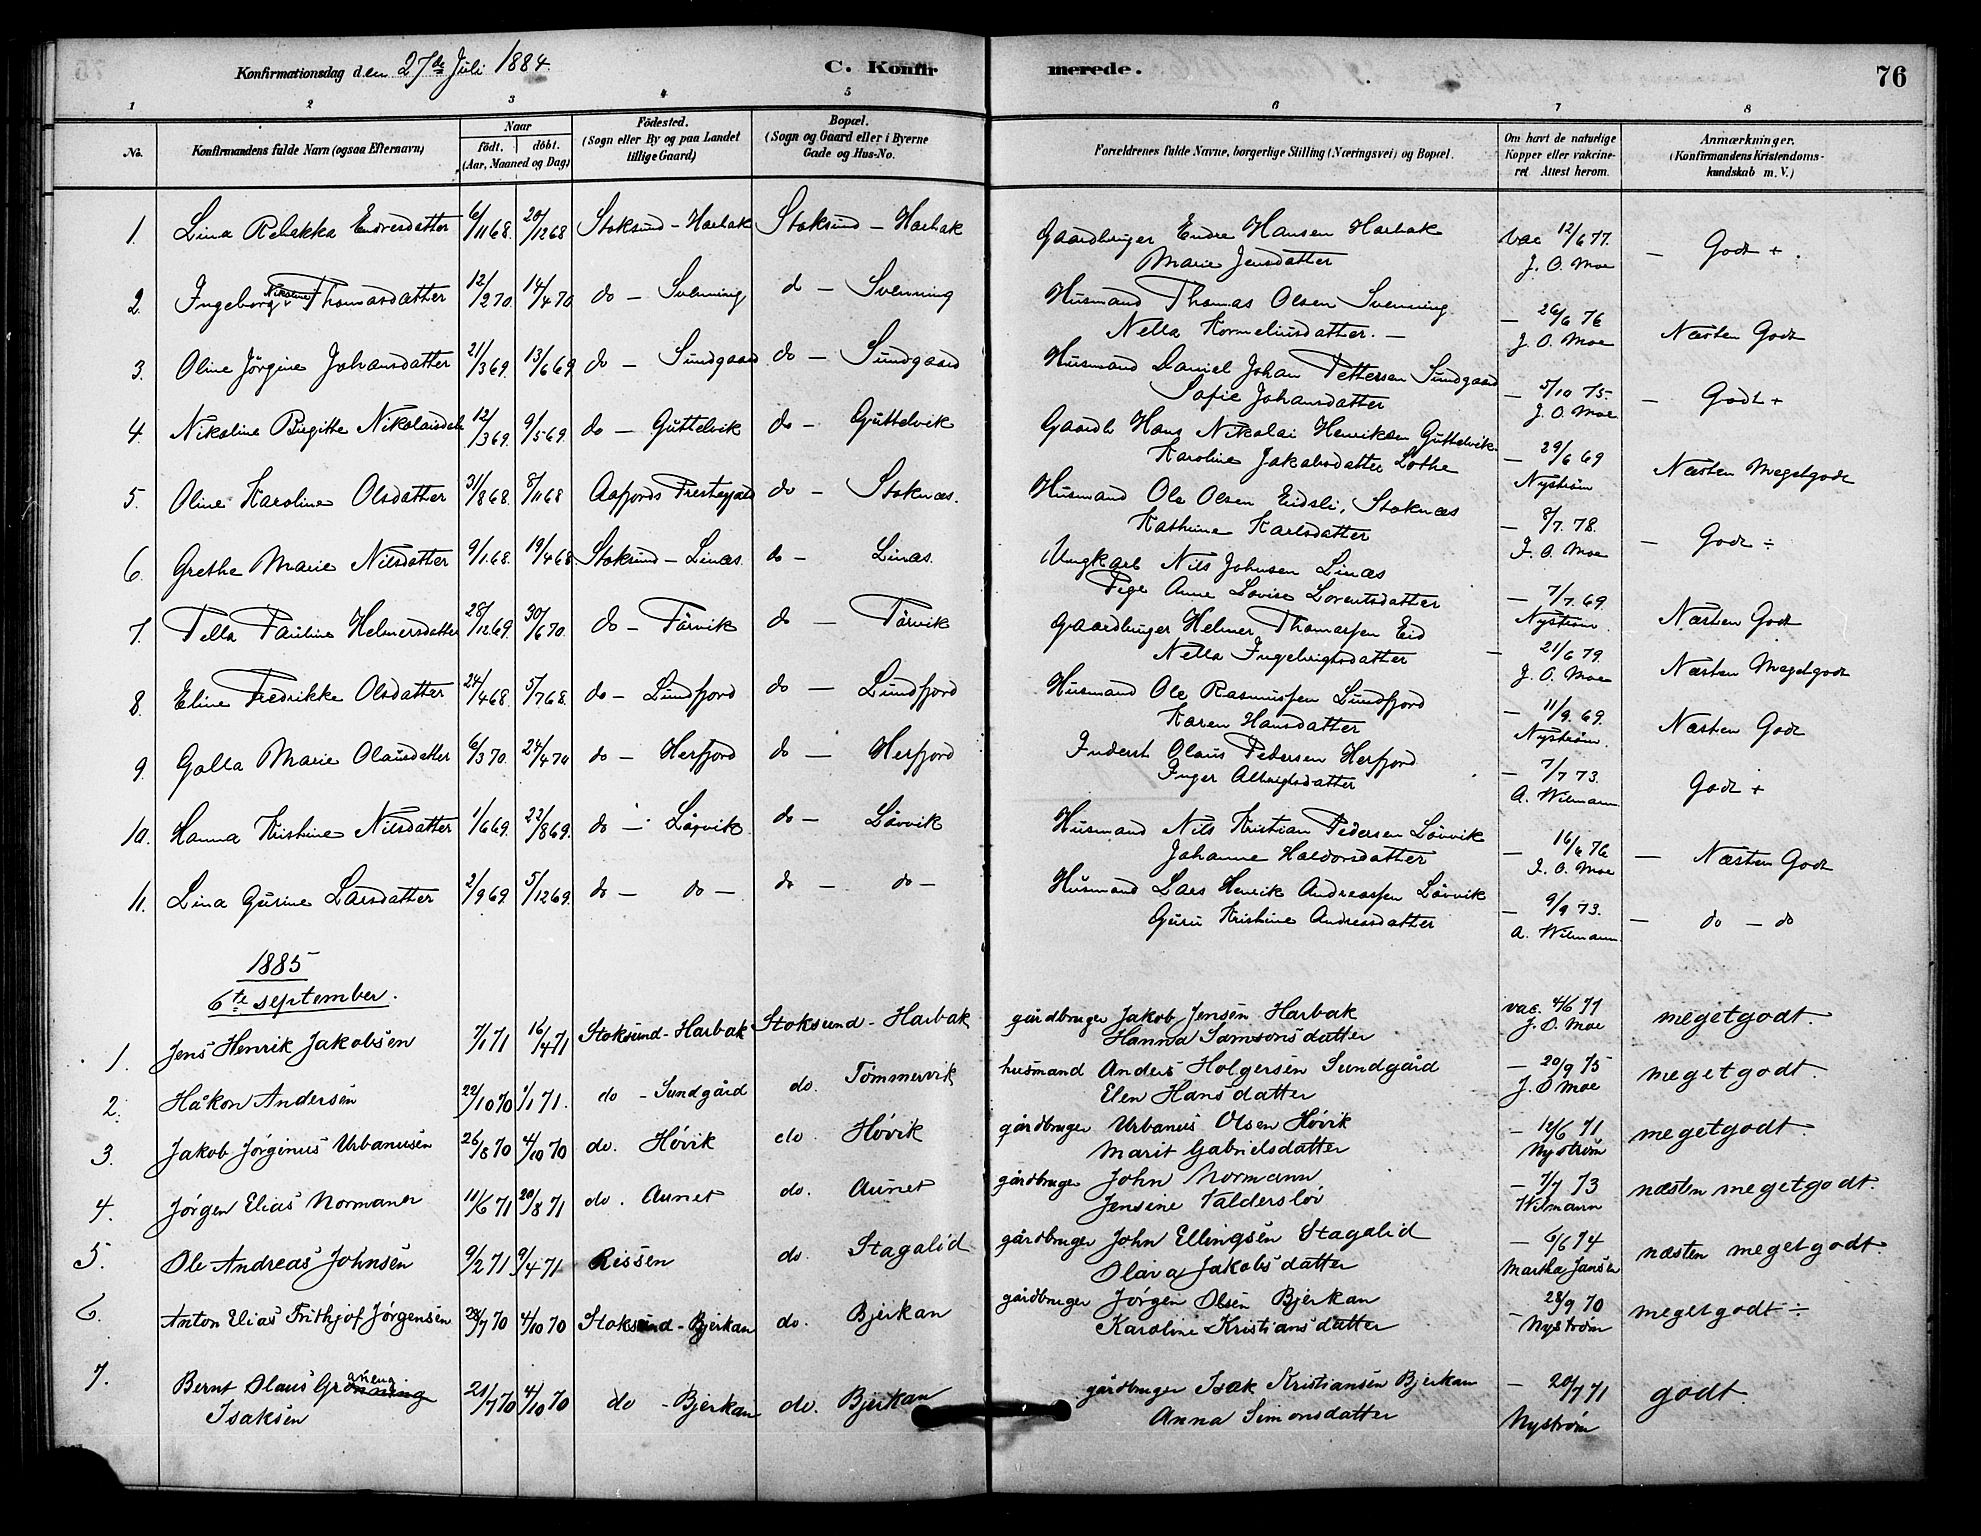 Konfirmationsdag den 27de Juli 1884.
C. Konfirmerede.
76
1 2 3 4 5 6 7 8
No. Konfirmandens fulde Navn (ogsaa Efternavn) Naar födt. döbt. (Aar, Maaned og Dag) Födested. (Sogn eller By og paa Landet tillige Gaard) Bopæl. (Sogn og Gaard eller i Byerne Gade og Hus-No. Forældrenes fulde Navne, borgerlige Stilling (Næringsvei) og Bopæl. Om havt de naturlige Kopper eller vakcineret Attest herom. Anmærkninger. (Konfirmandens Kristendomskundskab m. V.)
1. Lina Rebekka Endresdatter 6/11 68. 20/12 68 Stoksund - Harbak Stoksund - Harbak Gaardbruger Endre Hansen Harbak Vac 12/6 77. — Godt +.
Marie Jensdatter J. O. Moe
2. Ingeborg Nikoline Thomasdatter 12/2 70. 14/4 70 do - Svenning d - Svenning Husmand Thomas Olsen Svenning — 26/6 76 Næsten Godt
Nella Korneliusdatter. — J. O. Moe
3. Oline Jörgine Johansdatter 21/3 69. 13/6 69 do - Sundgaard do - Sundgaard Husmand Daniel Johan Pettersen Sundgaard — 5/10 75. — Godt +
Sofie Johansdatter J. O. Moe
4. Nikoline Birgitte Nikolaisdatr 12/3 69. 9/5 69. do - Guttelvik do - Guttelvik Gaardb Hans Nikolai Henriksen Guttelvik — 29/6 69 Næsten Megetgodt
Karoline Jakobsdatter Lothe Nyström
5. Oline Karoline Olsdatter 31/8 68. 8/11 68 Aafjords Prestegjeld do - Stoknæs. Husmand Ole Olsen Eidsli, Stoknæs — 8/7. 78. — Godt ÷
Kathrine Karlsdatter J. O. Moe
6. Grethe Marie Nilsdatter 9/1 68. 19/4 68 Stoksund - Linæs. do - Linæs. Ungkarl Nils Johnsen Linæs — 7/7. 69. Næsten Godt
Pige Anne Lovise Lorentsdatter Nyström.
7. Pella Pauline Helmersdatter 28/12 69. 30/6 70. do - Tårvik do - Tårvik Gaardbruger Helmer Thomassen Eid — 21/6 79. Næsten Megetgodt
Nella Ingebrigtsdatter J. O. Moe
8. Eline Fredrikke Olsdatter 24/4 68. 5/7 68. do - Lundfjord do - Lundfjord Husmand Ole Rasmussen Lundfjord — 11/9. 69. Næsten Godt
Karen Hansdatter Nyström.
9. Golla Marie Olausdatter 6/3 70. 24/4 70 do - Herfjord do - Herfjord Inderst Olaus Pedersen Herfjord — 7/7 73. Godt +
Inger Albrigtsdatter A. Wilmann
10. Hanna Kristine Nilsdatter 1/6 69. 22/8 69. do - Lövvik do - Lövvik Husmand Nils Kristian Pedersen Lövvik — 16/6 76 — Næsten Godt
Johanne Haldorsdatter J. O. Moe
11. Lina Gurine Larsdatter 2/9 69. 5/12 69. do - do - do - do - Husmand Lars Henrik Andreassen Lövvik — 9/9 73. — do - do
Guru Kristine Andreasdatter A. Wilmann
1885
6te september.
1. Jens Henrik Jakobsen 7/1 71 16/4 71 Stoksund - Harbak Stoksund - Harbak gårdbruger Jakob Jensen Harbak vac. 4/6 77 megetgodt.
Hanna Samsonsdatter J. O. Moe
2. Håkon Andersen 22/10 70 1/1 71. do - Sundgård do. Tömmervik husmand Anders Holgersen Sundgård — 20/9 75 megetgodt.
Elen Hansdatter J. O Moe
3. Jakob Jørginus Urbanusen 26/8 70 4/10 70 do. Høvik do. Høvik gårdbruger Urbanus Olsen Høvik — 12/6 71 megetgodt.
Marit Gabrielsdatter Nyström
4. Jørgen Elias Normann 11/6 71 20/8 71 do. Aunet do. Aunet gårdbruger John Normann — 7/7 73 næsten megetgodt.
Jensine Valdersløv Wilmann
5. Ole Andreas Johnsen 9/2 71 9/4 71 Rissen do. Stagalid gårdbruger John Ellingsen Stagalid — 6/6 74 næsten megetgodt.
Olava Jakobsdatter Martha Jansen
6. Anton Elias Frithjof Jørgensen 28/7 70 4/10 70 Stoksund - Bjerkan do. Bjerkan gårdbruger Jørgen Olsen Bjerkan — 28/9 70 megetgodt ÷
Karoline Kristiansdatter Nyström
7. Bernt Olaus Grønning 21/7 70 4/10 70 do - Bjerkan do. Bjerkan gårdbruger Isak Kristiansen Bjerkan — 20/7 71 godt.
Isaksen Anna Simonsdatter Nyström